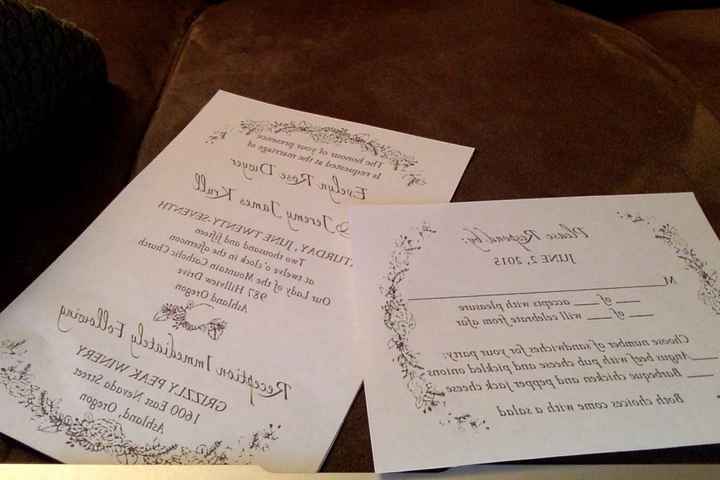 The honour of your presence
is requested at the marriage of
Evelyn Rose Dwyer
& Jeremy James Krull
SATURDAY, JUNE TWENTY SEVENTH
Two thousand and fifteen
at twelve o'clock in the afternoon
Our Lady of the Mountain Catholic Church
987 Hillview Drive
Ashland Oregon
Reception Immediately Following
GRIZZLY PEAK WINERY
1600 East Nevada Street
Ashland, Oregon
Please Respond by:
JUNE 2, 2015
M
of accepts with pleasure
of will celebrate from afar
Choose number of sandwiches for your party:
Angus beef with pub cheese and pickled onions
Barbeque chicken and pepper jack cheese
Both choices come with a salad